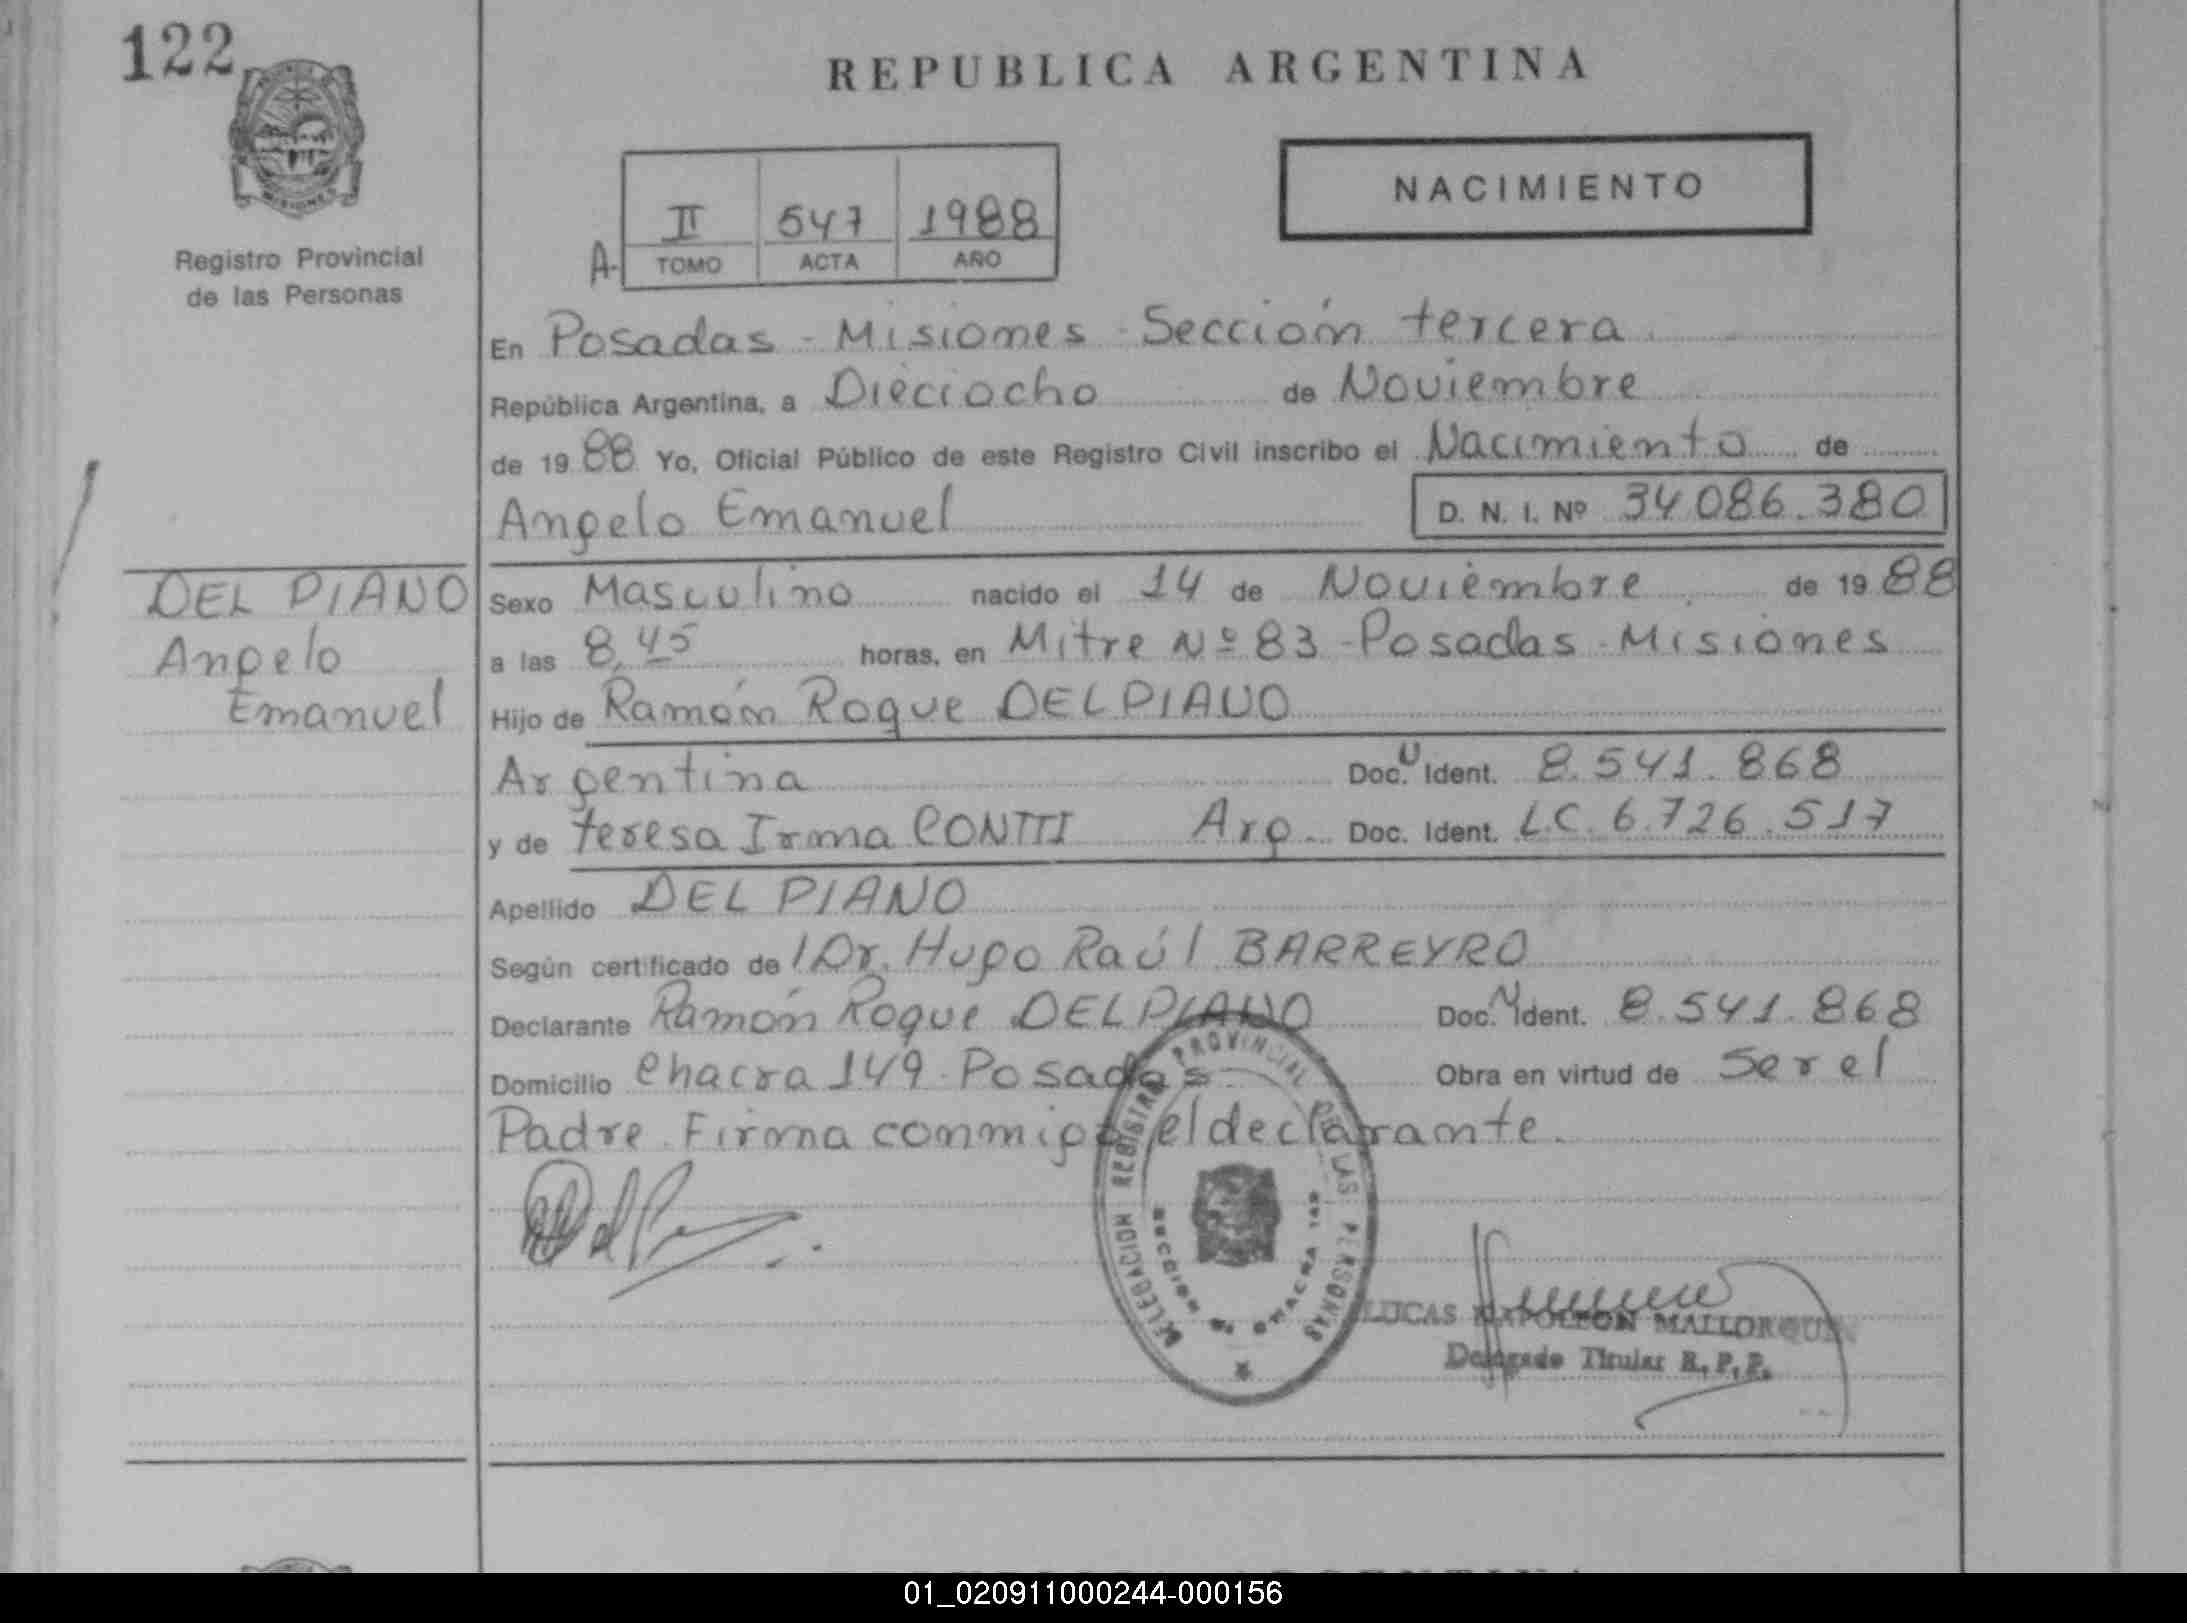 122
REPUBLICA ARGENTINA
NACIMIENTO
Registro Provincial
de las Personas
MISIONES
II 547 1988
A- TOMO ACTA AÑO
En Posadas - Misiones - Sección tercera
República Argentina, a Dieciocho de Noviembre
de 1988 Yo, Oficial Público de este Registro Civil inscribo el Nacimiento de
Angelo Emanuel D. N. I. Nº 34.086.380
DEL PIANO
Angelo
Emanuel
Sexo Masculino nacido el 14 de Noviembre de 1988
a las 8,45 horas, en Mitre Nº 83 - Posadas - Misiones
Hijo de Ramón Roque DEL PIANO
Argentina Doc. U Ident. 8.541.868
y de teresa Irma CONTTI Arg. Doc. Ident. L.C. 6.726.517
Apellido DEL PIANO
Según certificado de l Dr. Hugo Raúl BARREYRO
Declarante Ramón Roque DEL PIANO Doc. U Ident. 8.541.868
Domicilio Chacra 149 - Posadas. Obra en virtud de Ser el
Padre. Firma conmigo el declarante.
DELEGACION REGISTRO PROVINCIAL DE LAS PERSONAS
SECCION 3a CHACRA 149
LUCAS NAPOLEON MALLORQUIN
Delegado Titular R. P. P.
01_020911000244-000156